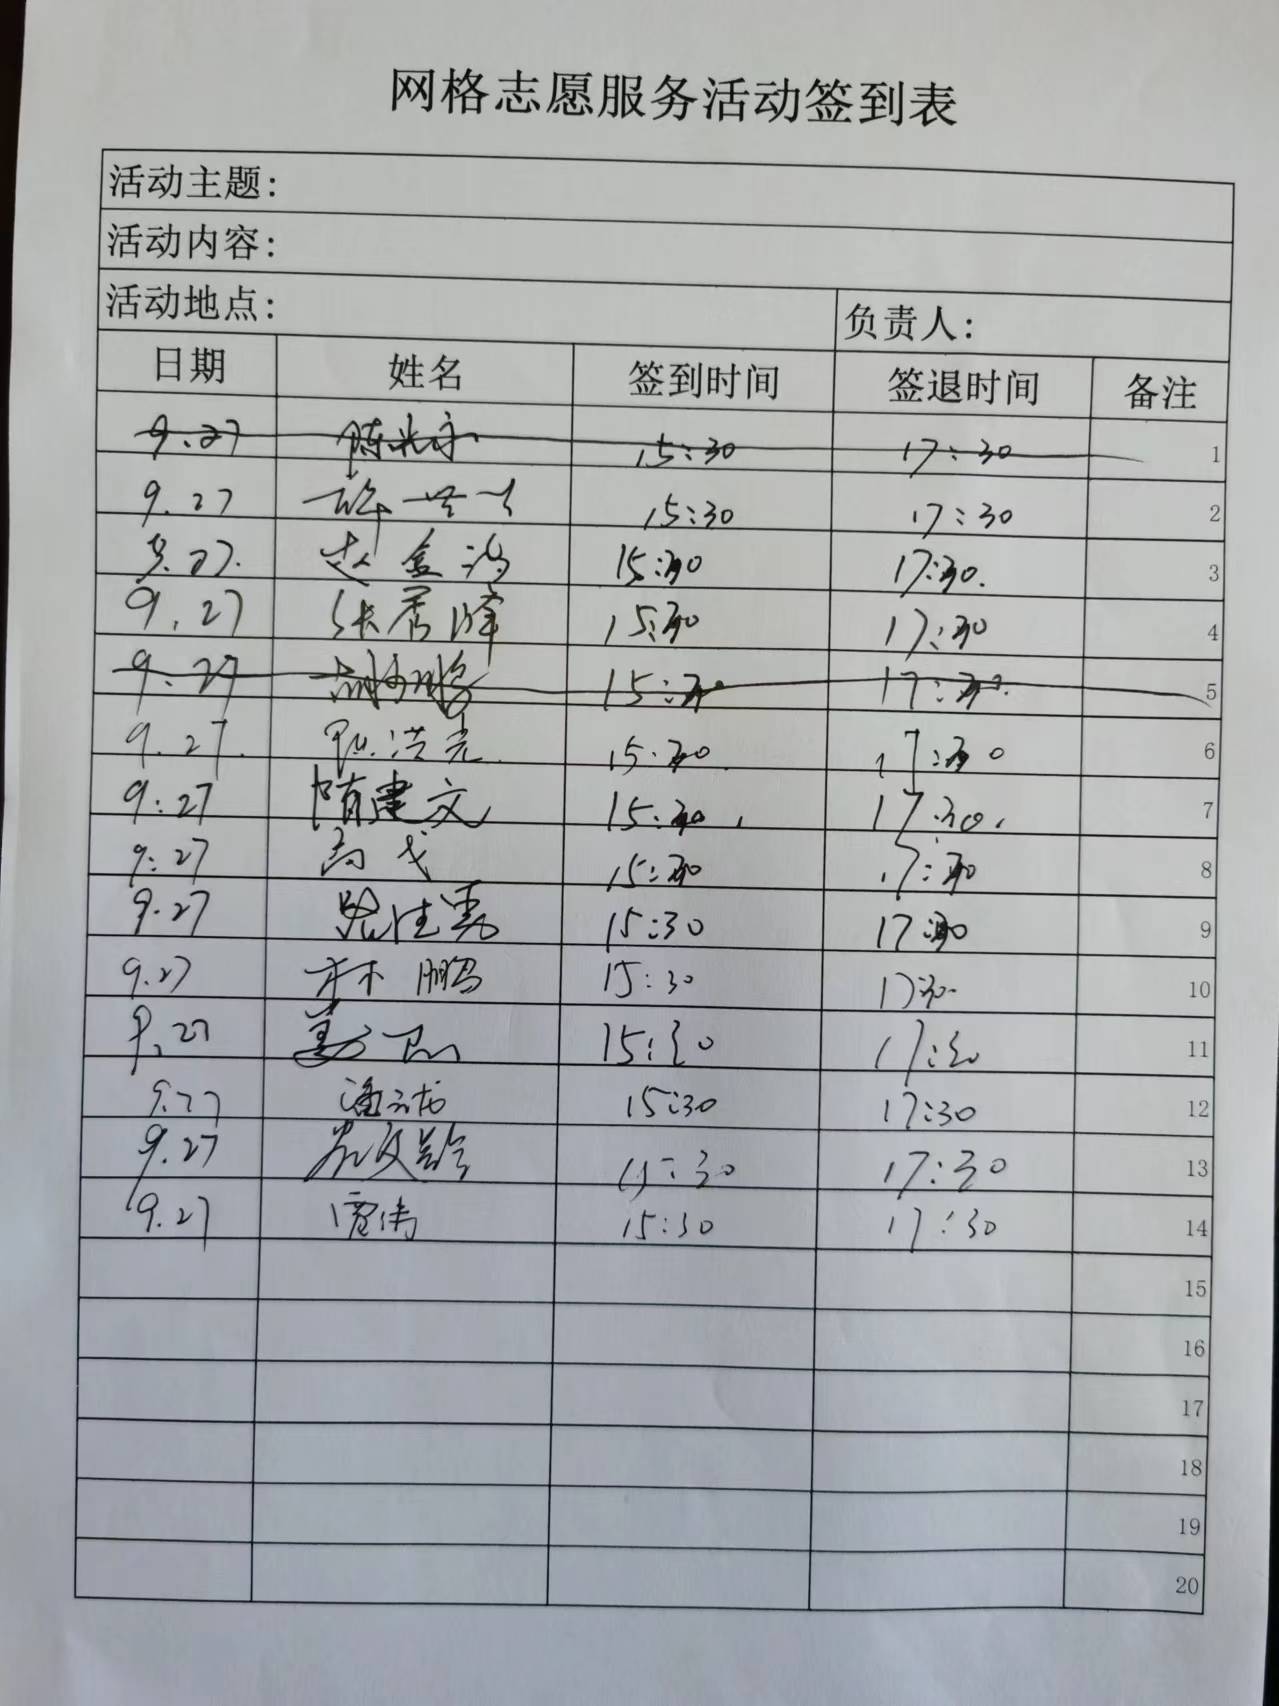 网格志愿服务活动签到表
活动主题:
活动内容:
活动地点: 负责人:
日期 姓名 签到时间 签退时间 备注
9.27 15:30 17:30 1
9.27 15:30 17:30 2
9.27. 赵金鸿 15:30 17:30. 3
9.27 张秀峰 15:30 17:30 4
9.27 15:30 17:30. 5
9.27. 洪光 15:30 17:30 6
9:27 隋建文 15:30. 17:30. 7
9:27 高戈 15:30 17:30 8
9.27 路佳 15:30 17:30 9
9.27 林鹏 15:30 17:30 10
9.27 姜 15:30 17:30 11
9.27 潘云龙 15:30 17:30 12
9.27 15:30 17:30 13
9.27 15:30 17:30 14
15
16
17
18
19
20